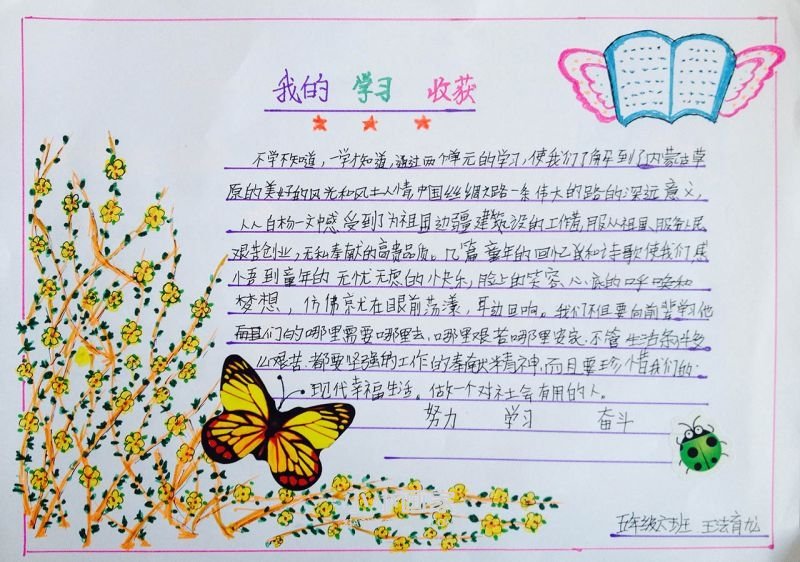 我的 学习 收获
不学不知道，一学才知道，通过两个单元的学习，使我们了解到了内蒙古草
原的美好的风光和风土人情，中国丝绸之路一条伟大的路的深远意义，
从白杨一文中感受到了为祖国边疆建筑设的工作者，服从祖国、服务人民
艰苦创业，无私奉献的高贵品质。几篇童年的回忆说和诗歌使我们感
悟到童年的无忧无虑的小快乐，脸上的笑容、心底的呼唤和
梦想，仿佛就在眼前荡漾，耳边回响。我们不但要向前辈学习他
们的哪里需要哪里去，哪里艰苦哪里安家，不管生活条件多
么艰苦，都要坚强的工作的奉献精神，而且要珍惜我们的
现代幸福生活。做一个对社会有用的人。
努力 学习 奋斗
五年级六班 王法育龙